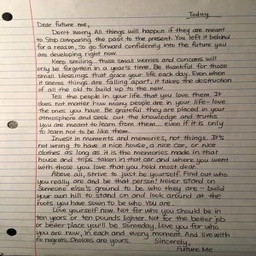 Today
Dear future me,
Don't worry. All things will happen if they are meant
to. Stop comparing the past to the present. You left it behind
for a reason, so go forward confidently into the future you
are developing right now.
Keep smiling... those small worries and concerns will
only be forgotten in a year's time. Be thankful for those
small blessings that grace your life each day. Even when
it seems things are falling apart, it takes the destruction
of all the old to build up to the new.
Tell the people in your life that you love them. It
does not matter how many people are in your life - love
the ones you have. Be grateful they are placed in your
atmosphere and seek out the knowledge and truths
you are meant to learn from them... even if it is only
to learn not to be like them.
Invest in moments and memories, not things. It's
not wrong to have a nice house, a nice car, or nice
clothes as long as it is the memories made in that
house and trips taken in that car and where you went
with those you love that you hold most dear.
Above all, strive to just be yourself. Find out who
you really are and be that person! Never stand on
someone else's ground to be who they are - build
your own hill to stand on and look around at the
roots you have sown to be who you are.
Love yourself now. Not for who you should be in
ten years or ten pounds lighter. Not for the better job
or better place you'll be someday. Love you for who
you are now, in each and every moment. And live with
no regrets. Choices are yours.
Sincerely,
Future Me